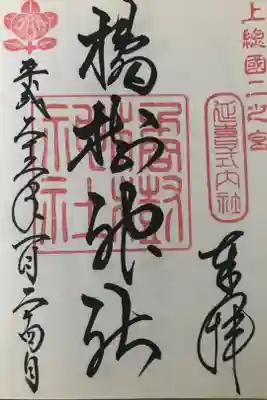 上總國二之宮
延喜式内社
奉拝
橘樹神社
橘樹神社
平成二十三年一月二十四日